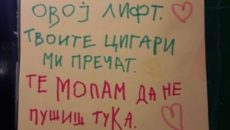 ОВОЈ ЛИФТ.
ТВОИТЕ ЦИГАРИ
МИ ПРЕЧАТ.
ТЕ МОЛАМ ДА НЕ
ПУШИШ ТУКА.